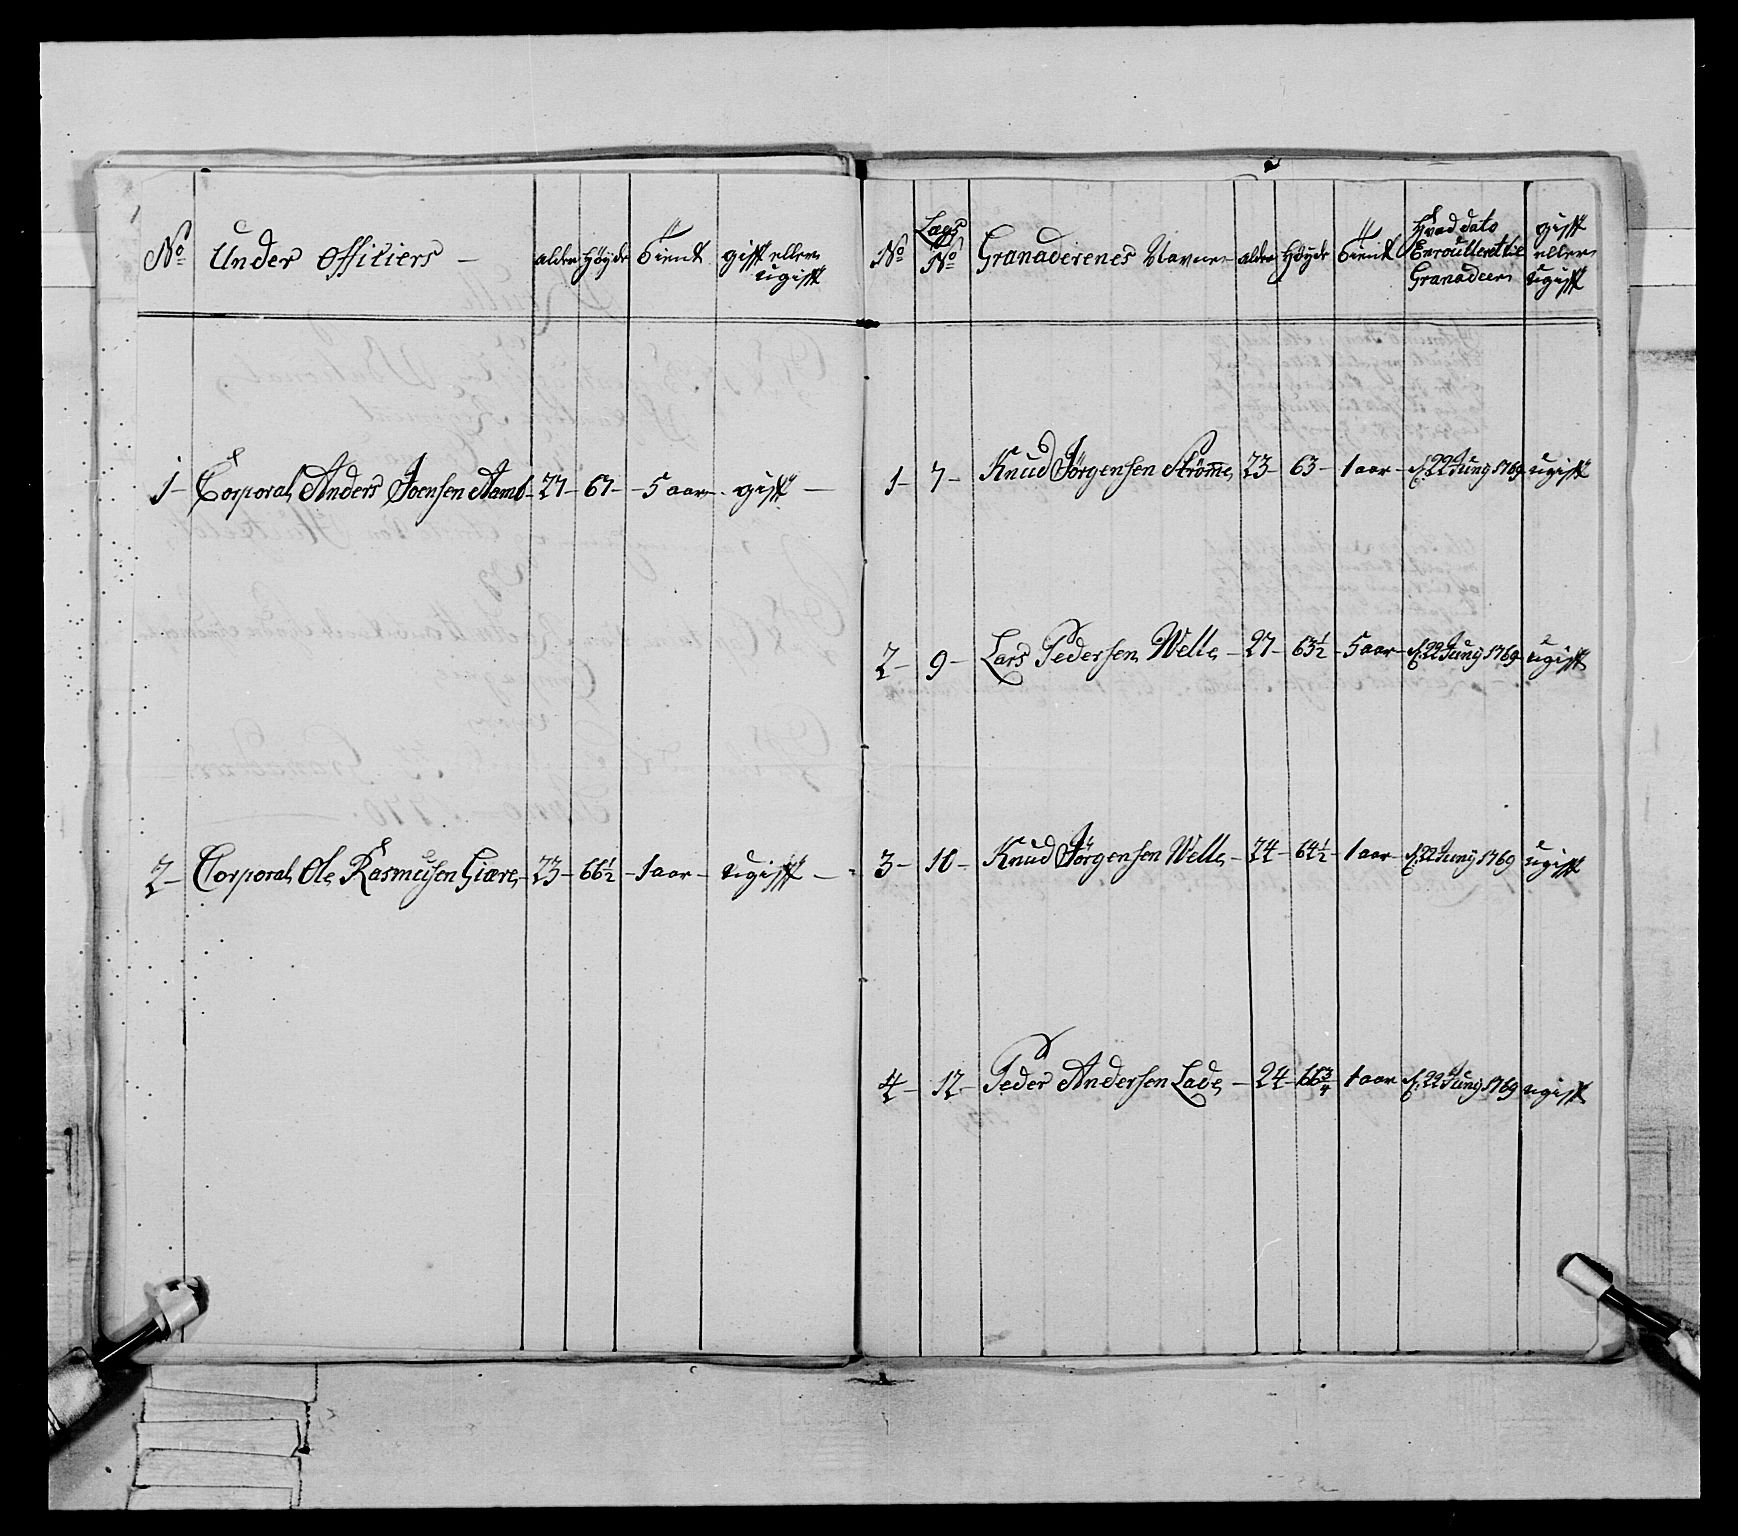 No Under Officiers - alder Höyde tient gift eller ugift
1- Corporal Anders Joensen Aamb- 27- 67- -5 aar- gift -
2- Corporal Ole Rasmusen Giære- 23- 66½ -1 aar- ugift -
No Lægs No Granaderenes Navne- alder Höyde tient Hvad dato Enroulleret til Granadeer gift eller ugift
1- 7- Knud Jörgensen Strömme, 23- 63- 1 aar- d. 22 Juny 1769 ugift
2- 9- Lars Pedersen Welle- 27- 63½ - 5 aar- d. 22 Juny 1769 ugift
3- 10- Knud Jörgensen Welle- 24- 64½ - 1 aar- d. 22 Juny 1769 ugift
4- 12- Peder Andersen Lade, - 24- 66¾ - 1 aar d. 22 Juny 1769 ugift